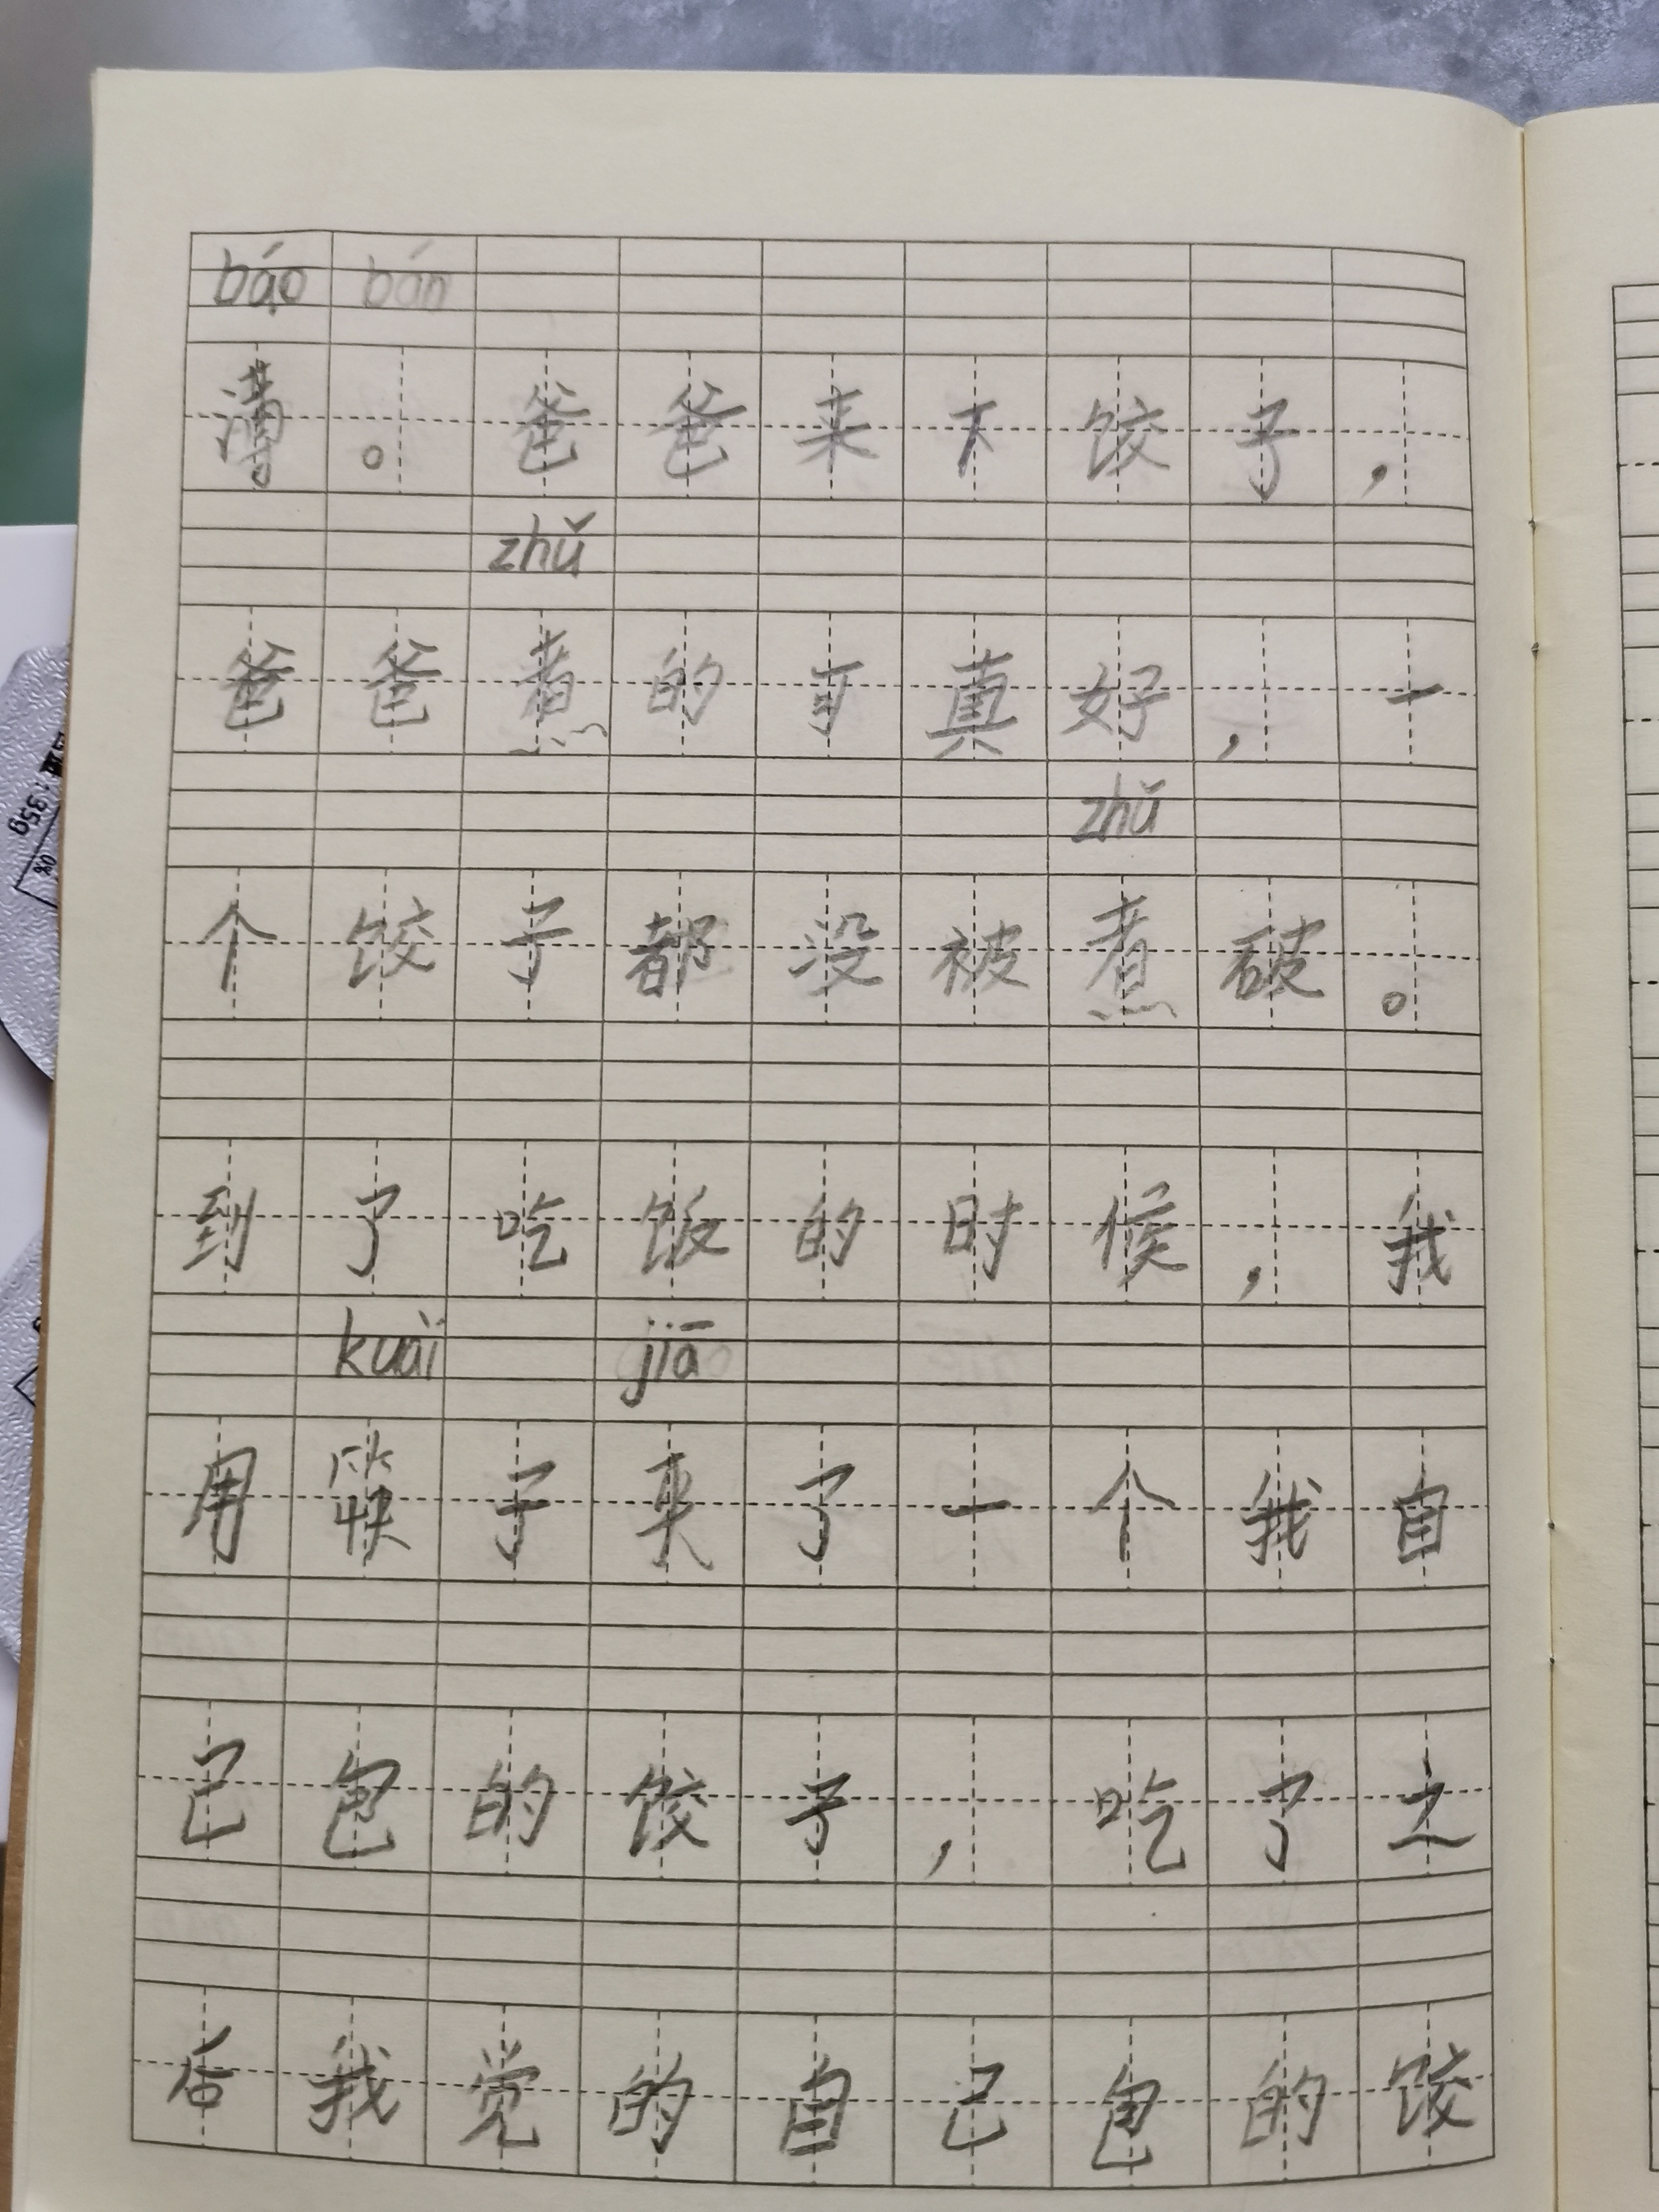 báo bán
薄。爸爸来下饺子，
zhǔ
爸爸煮的可真好，一
zhǔ
个饺子都没被煮破。
到了吃饭的时候，我
kuài jiā
用筷子夹了一个我自
己包的饺子，吃了之
后我觉的自己包的饺
1.35g